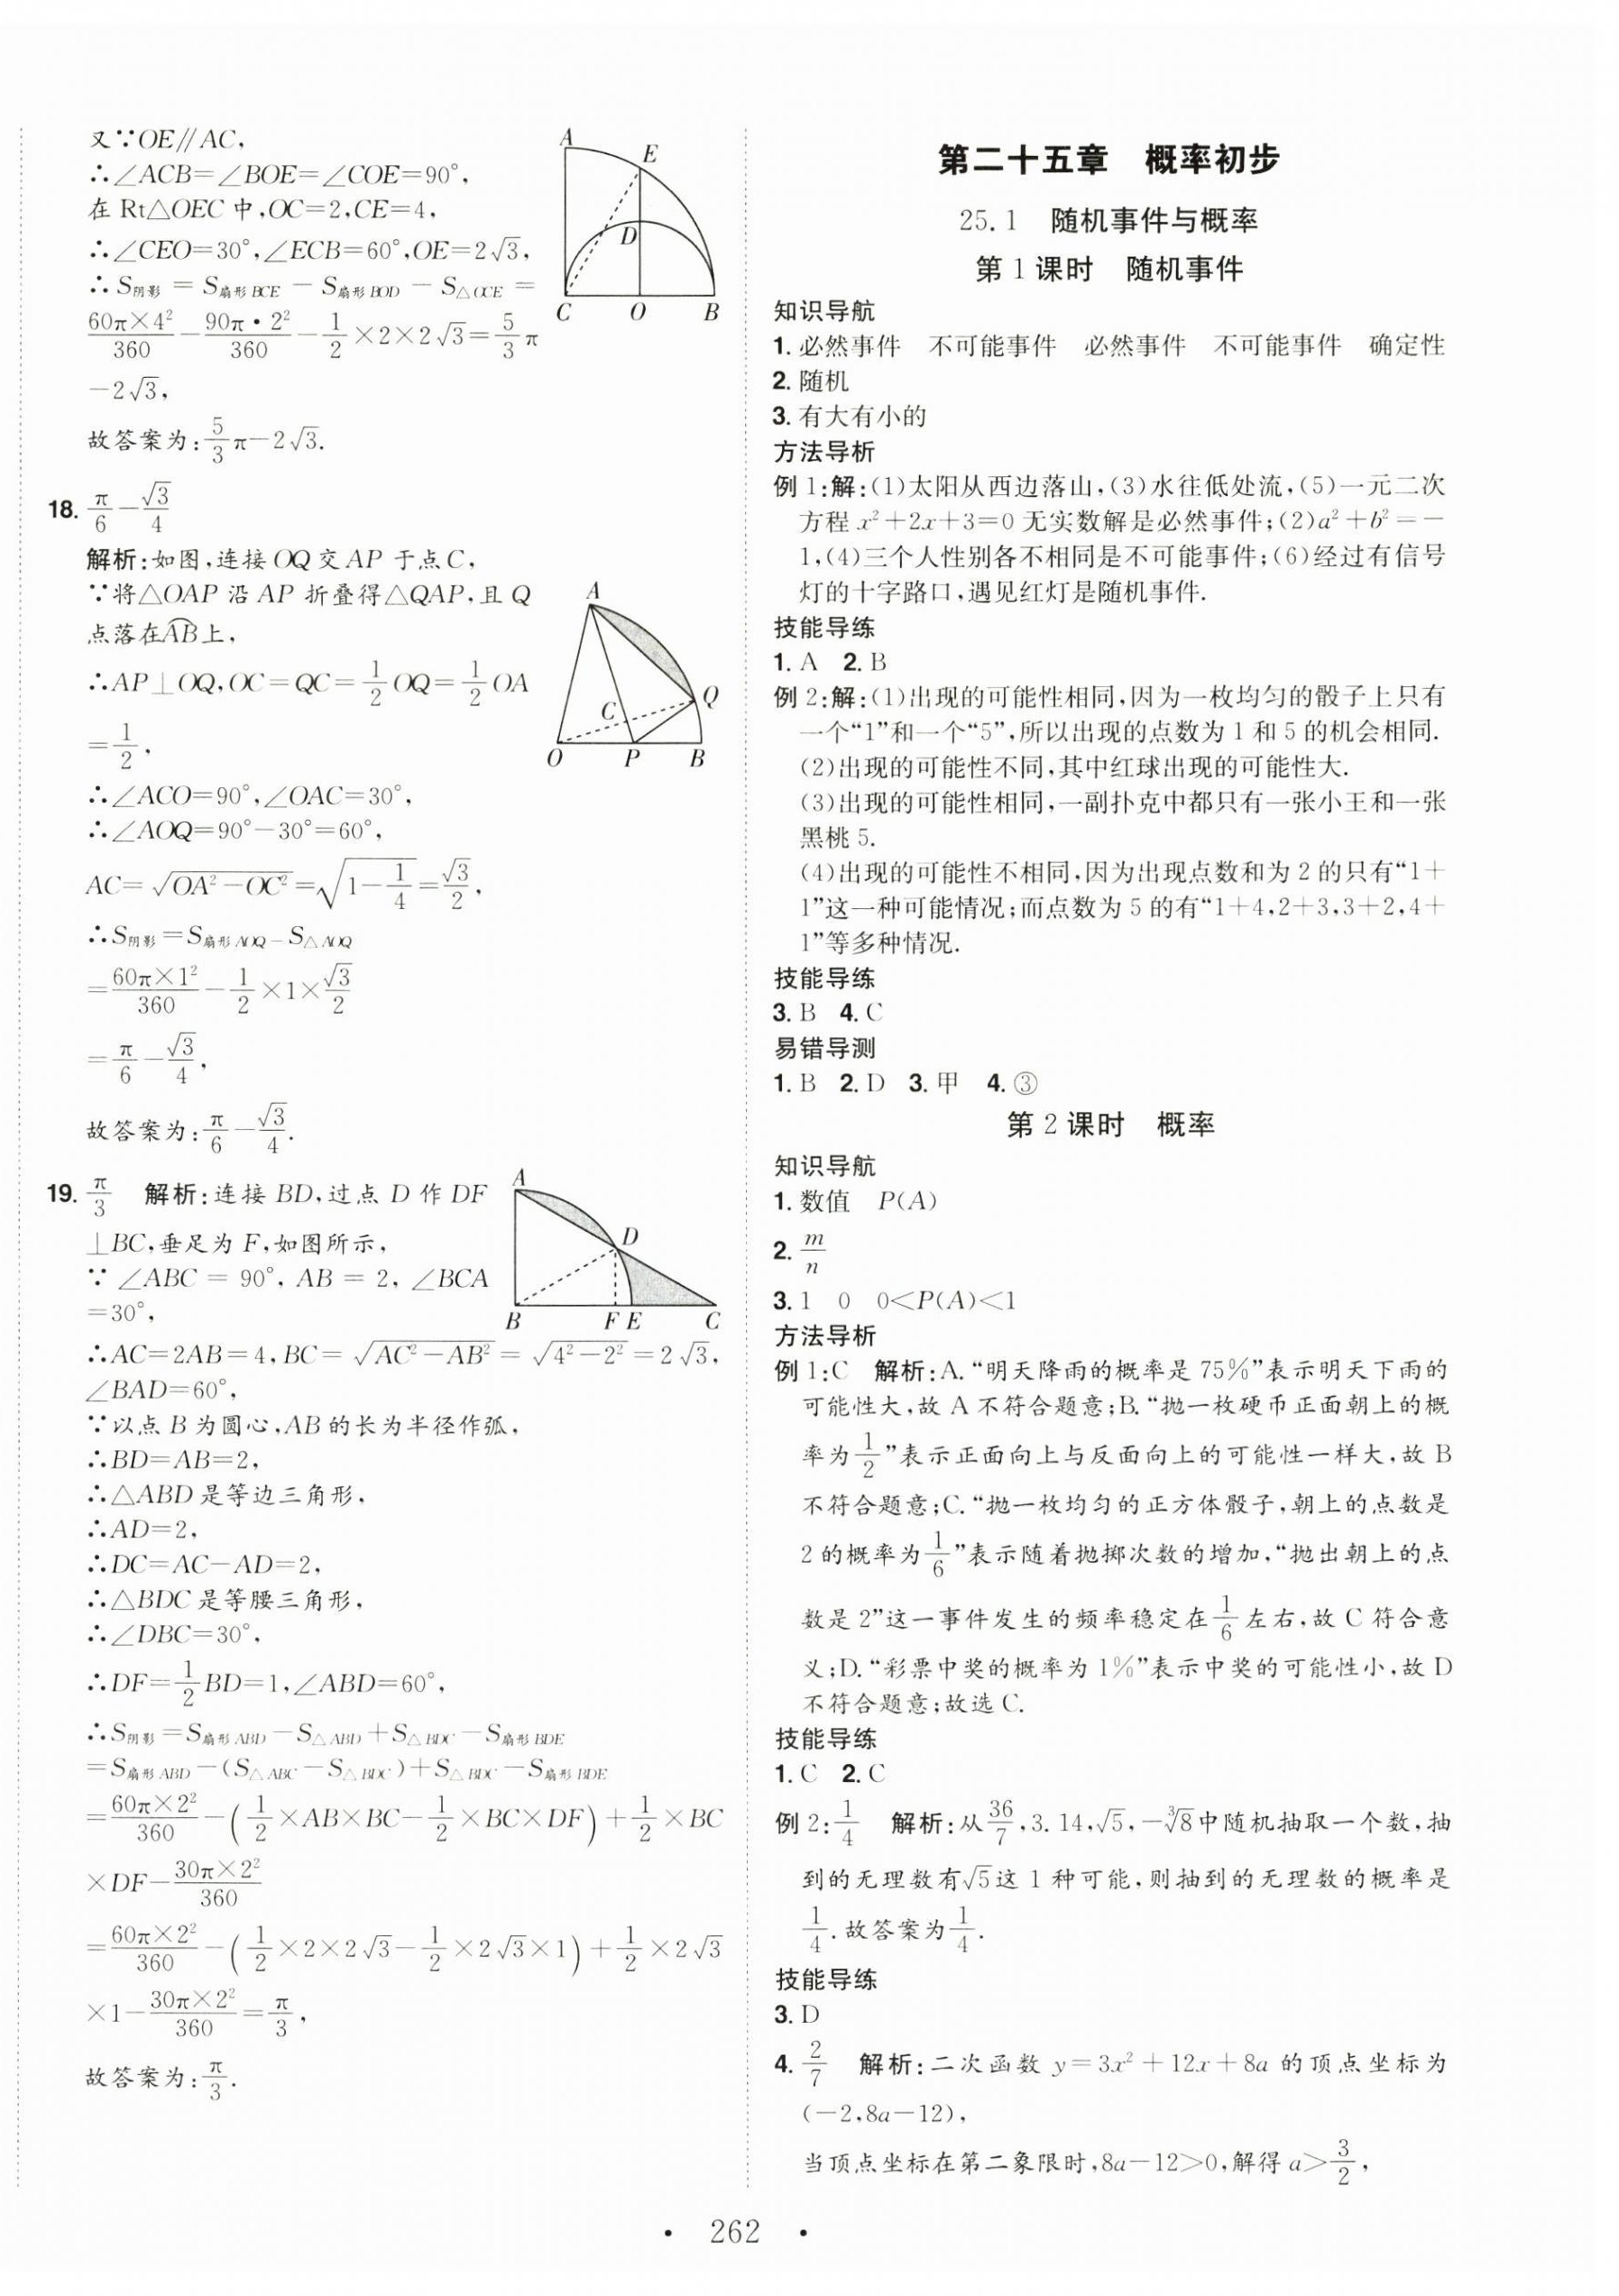 又∵OE∥AC，
∴∠ACB=∠BOE=∠COE=90°，
在 Rt△OEC 中,OC=2,CE=4，
∴∠CEO=30°,∠ECB=60°,OE=2√3，
∴ S阴影 = S扇形BCE − S扇形BOD − S△OCE =
60π×4²/360−90π·2²/360−1/2×2×2√3=5/3π
−2√3，
故答案为:5/3π−2√3.
A
E
D
C O B
18. π/6−√3/4
解析:如图,连接 OQ 交 AP 于点 C，
∵将△OAP 沿 AP 折叠得△QAP,且 Q
点落在AB⌒上，
∴AP⊥OQ,OC=QC=1/2OQ=1/2OA
=1/2，
∴∠ACO=90°,∠OAC=30°，
∴∠AOQ=90°−30°=60°，
AC=√(OA²−OC²)=√(1−1/4)=√3/2，
∴S阴影=S扇形AOQ−S△AOQ
=60π×1²/360−1/2×1×√3/2
=π/6−√3/4，
故答案为:π/6−√3/4.
A
Q
C
O P B
19. π/3 解析:连接 BD,过点 D 作 DF
⊥BC,垂足为 F,如图所示，
∵ ∠ABC = 90°, AB = 2, ∠BCA
=30°，
∴AC=2AB=4,BC=√(AC²−AB²)=√(4²−2²)=2√3，
∠BAD=60°，
∵以点 B 为圆心,AB 的长为半径作弧，
∴BD=AB=2，
∴△ABD 是等边三角形，
∴AD=2，
∴DC=AC−AD=2，
∴△BDC 是等腰三角形，
∴∠DBC=30°，
∴DF=1/2BD=1,∠ABD=60°，
∴S阴影=S扇形ABD−S△ABD+S△BDC−S扇形BDE
=S扇形ABD−(S△ABC−S△BDC)+S△BDC−S扇形BDE
=60π×2²/360−(1/2×AB×BC−1/2×BC×DF)+1/2×BC
×DF−30π×2²/360
=60π×2²/360−(1/2×2×2√3−1/2×2√3×1)+1/2×2√3
×1−30π×2²/360=π/3，
故答案为:π/3.
A
D
B F E C
第二十五章 概率初步
25.1 随机事件与概率
第 1 课时 随机事件
知识导航
1. 必然事件 不可能事件 必然事件 不可能事件 确定性
2. 随机
3. 有大有小的
方法导析
例 1:解:(1)太阳从西边落山,(3)水往低处流,(5)一元二次
方程 x²+2x+3=0 无实数解是必然事件;(2)a²+b²=−
1,(4)三个人性别各不相同是不可能事件;(6)经过有信号
灯的十字路口,遇见红灯是随机事件.
技能导练
1. A 2. B
例 2:解:(1)出现的可能性相同,因为一枚均匀的骰子上只有
一个“1”和一个“5”,所以出现的点数为 1 和 5 的机会相同.
(2)出现的可能性不同,其中红球出现的可能性大.
(3)出现的可能性相同,一副扑克中都只有一张小王和一张
黑桃 5.
(4)出现的可能性不相同,因为出现点数和为 2 的只有“1+
1”这一种可能情况;而点数为 5 的有“1+4,2+3,3+2,4+
1”等多种情况.
技能导练
3. B 4. C
易错导测
1. B 2. D 3. 甲 4. ③
第 2 课时 概率
知识导航
1. 数值 P(A)
2. m/n
3. 1 0 0<P(A)<1
方法导析
例 1:C 解析:A.“明天降雨的概率是 75%”表示明天下雨的
可能性大,故 A 不符合题意;B.“抛一枚硬币正面朝上的概
率为1/2”表示正面向上与反面向上的可能性一样大,故 B
不符合题意;C.“抛一枚均匀的正方体骰子,朝上的点数是
2 的概率为1/6”表示随着抛掷次数的增加,“抛出朝上的点
数是 2”这一事件发生的频率稳定在1/6左右,故 C 符合意
义;D.“彩票中奖的概率为 1%”表示中奖的可能性小,故 D
不符合题意;故选 C.
技能导练
1. C 2. C
例 2:1/4 解析:从36/7,3.14,√5,−∛8中随机抽取一个数,抽
到的无理数有√5这 1 种可能,则抽到的无理数的概率是
1/4.故答案为1/4.
技能导练
3. D
4. 2/7 解析:二次函数 y=3x²+12x+8a 的顶点坐标为
(−2,8a−12)，
当顶点坐标在第二象限时,8a−12>0,解得 a>3/2，
· 262 ·